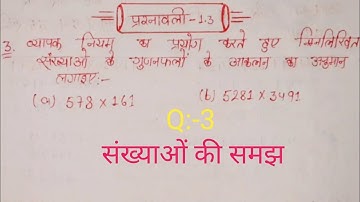 प्रश्नावली - 1.3
3. व्यापक नियम का प्रयोग करते हुए निम्नलिखित
संख्याओं के गुणनफलों के आकलन का अनुमान
लगाइए:-
(a) 578 × 161 (b) 5281 × 3491
Q:-3
संख्याओं की समझ